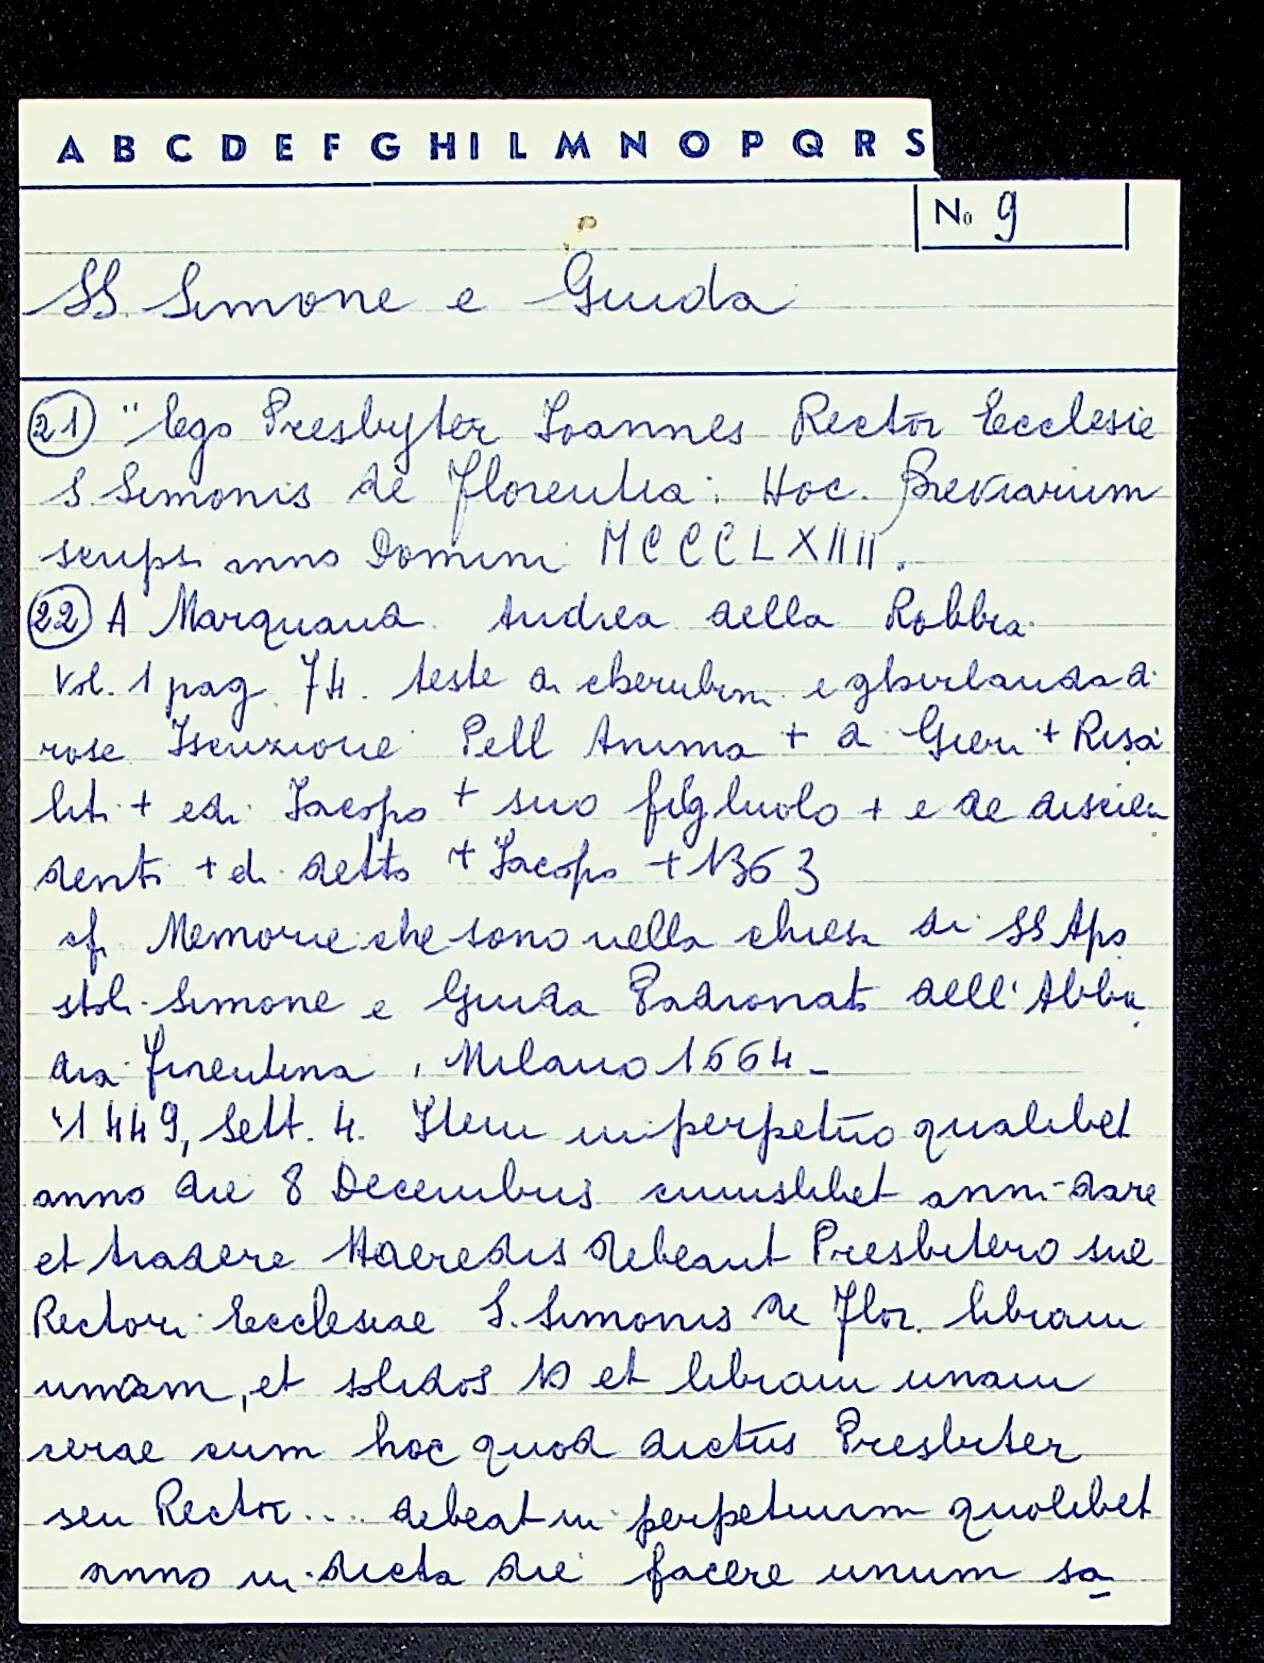 A B C D E F G H I L M N O P Q R S
No 9
SS. Simone e Giuda
(21) "Ego Presbyter Ioannes Rector Ecclesie
S Simonis de Florentia: Hoc. Breviarium
scripsi anno Domini MCCCLXIIII.
(22) A Marquand. Andrea della Robbia
Vol. 1 pag. 74. teste di cherubini e ghirlanda di
rose Iscrizione Pell Anima + di Gieri + Risa
liti + edi Iacopo + suo figluolo + e de discien
denti + di detto + Iacopo + 1363
cf. Memorie che sono nella chiesa di SS Apo
stoli Simone e Giuda Padronato dell'Abba
dia fiorentina, Milano 1664 -
"1449, Sett. 4. Item in perpetuo qualibet
anno die 8 Decembris cuiuslibet anni dare
et tradere Haeredis debeant Presbitero sive
Rectori Ecclesiae S. Simonis de Flor. libram
unam, et solidos 10 et libram unam
cerae cum hoc quod dictus Presbiter
seu Rector... debeat in perpetuum quolibet
anno in dicta die facere unum sa